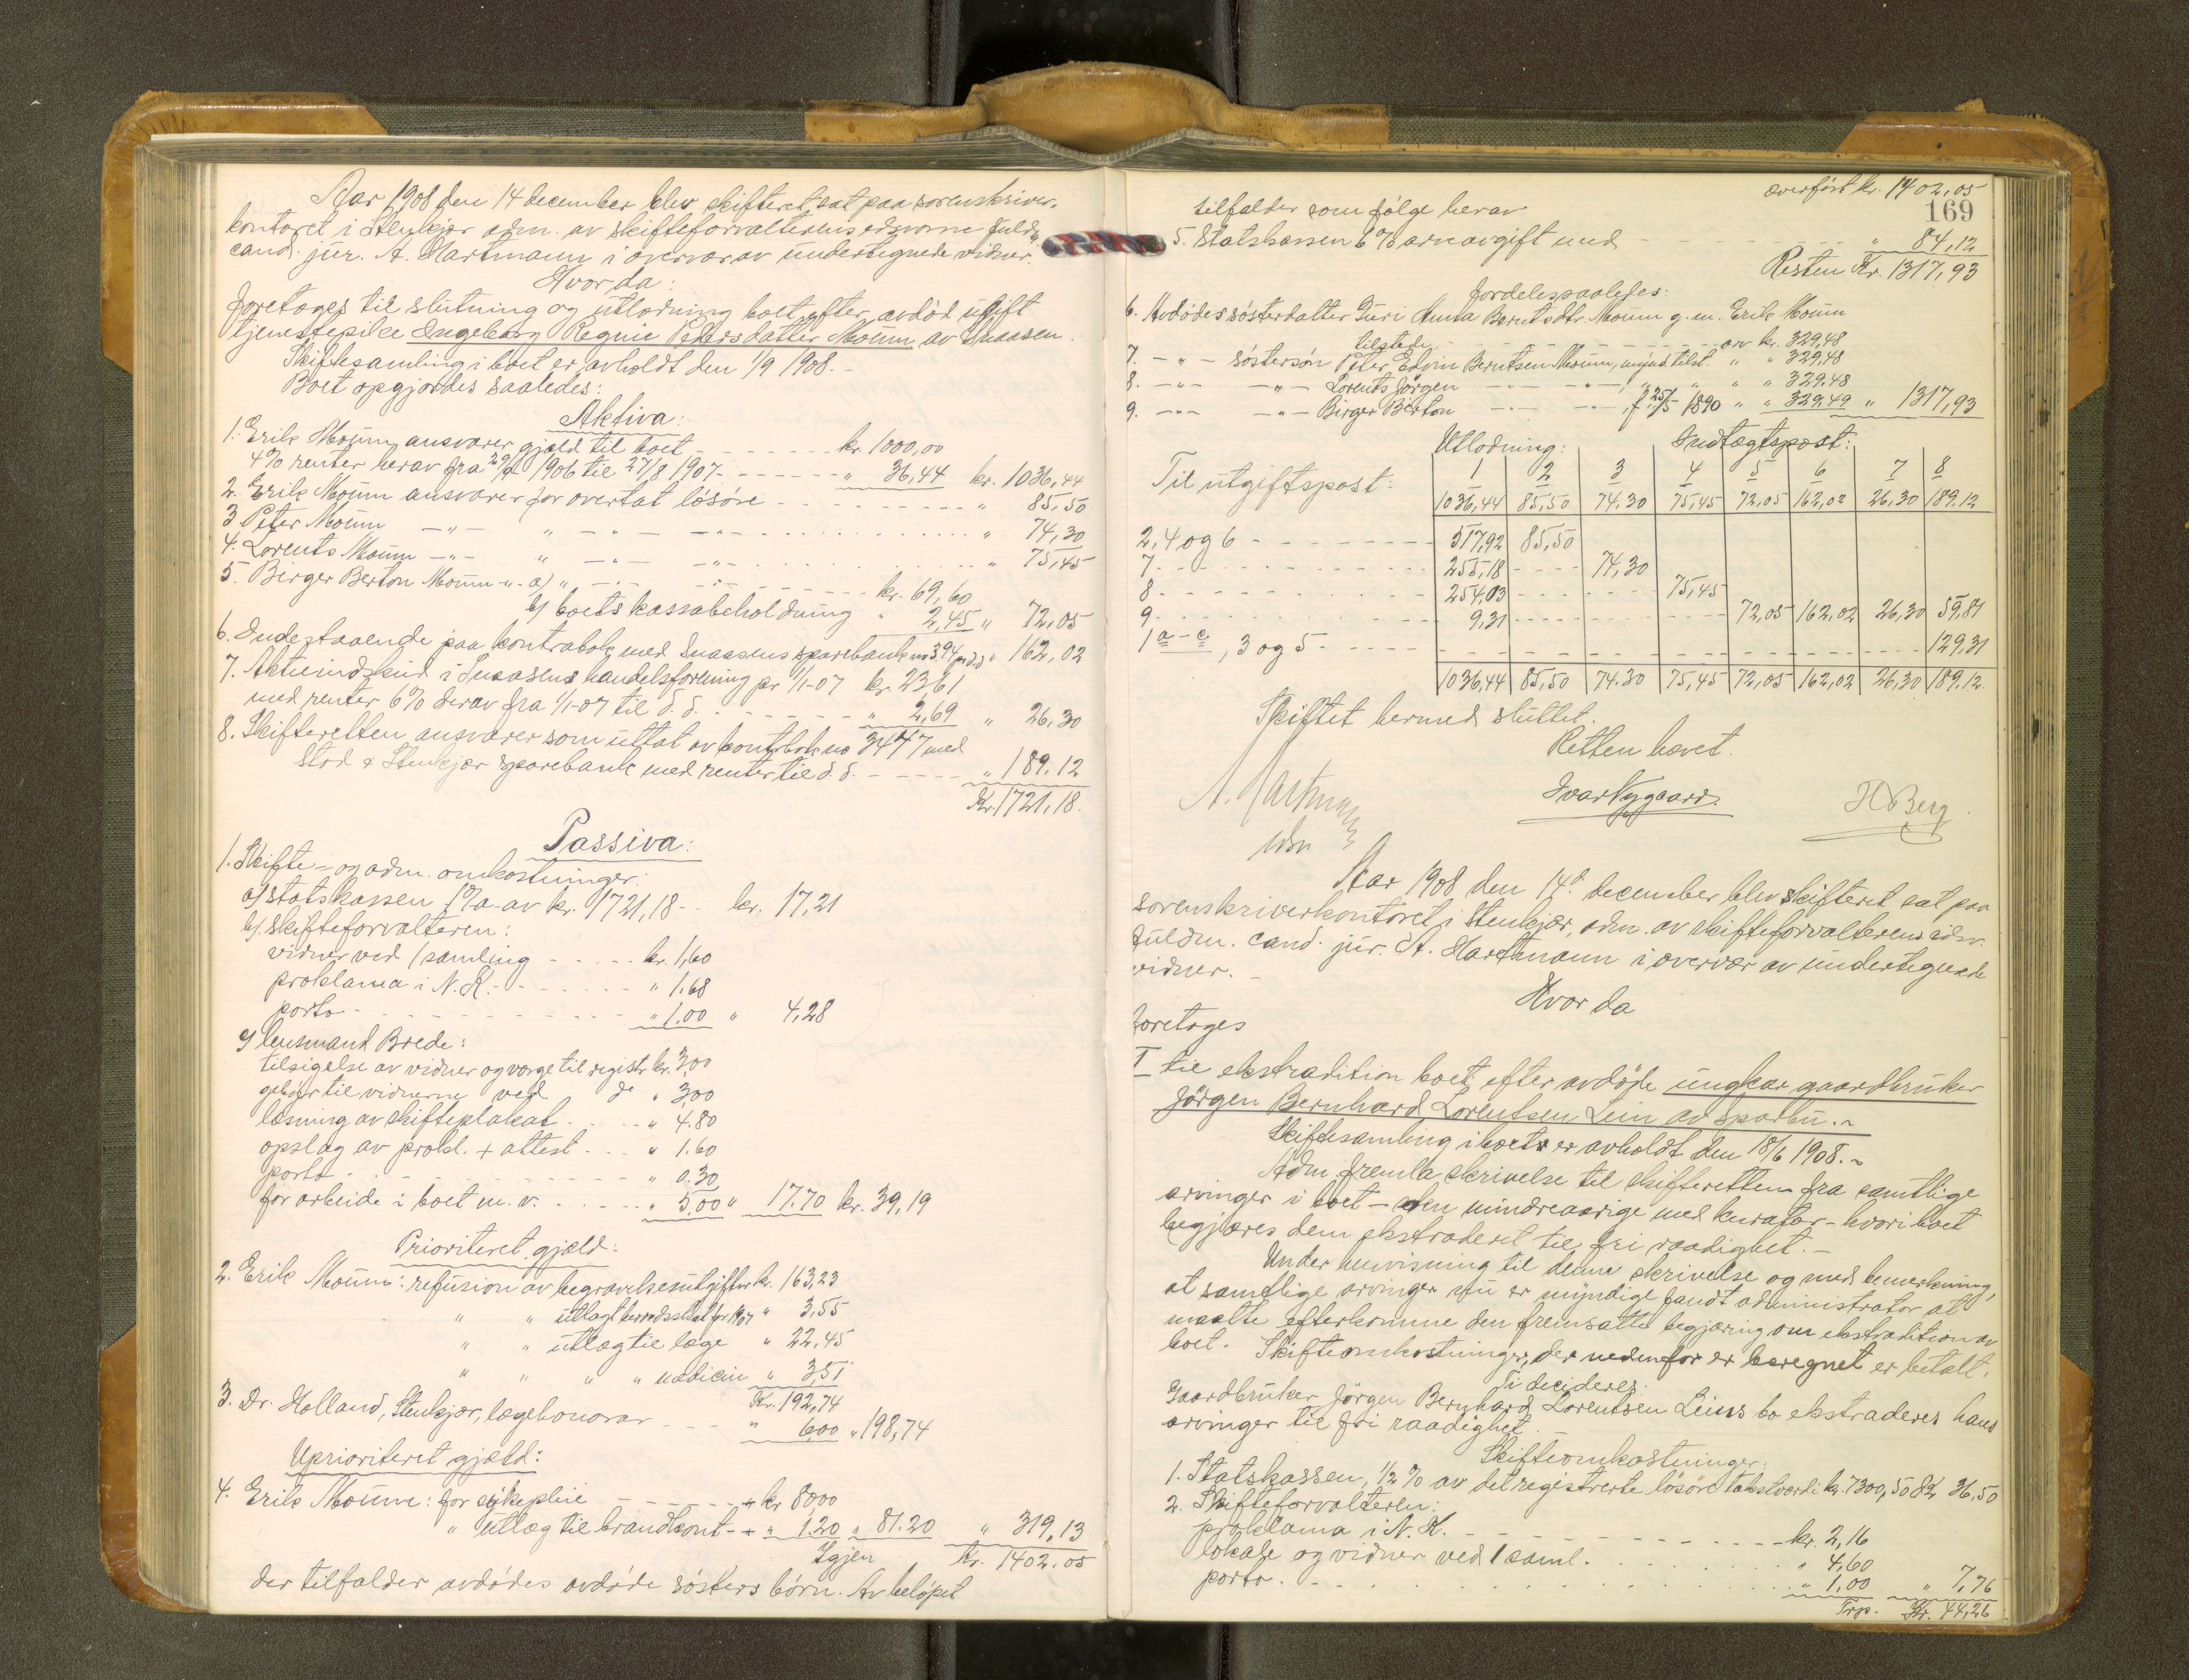 Aar 1908 den 14 december blev skifteret sat paa sorenskriver-
kontoret i Stenkjær adm. av skifteforvalterens edsvorne fuldm.
cand. jur. A. Hartmann i overvær av undertegnede vidner.
Hvor da:
Foretoges til slutning og utlodning boet efter avdød ugift
tjenestepike Ingeborg Regine Pedersdatter Moum av Snaasen.
Skiftesamling i boet er avholdt den 1/9 1908.-
Boet opgjordes saaledes:
Aktiva:
1. Erik Moum ansvarer gjæld til boet - - - - - kr. 1000,00
4% renter herav fra 29/9 1906 til 27/8 1907 - - - - - " 36,44 kr. 1036,44
2. Erik Moum ansvarer for overtat løsøre - - - - - " 85,50
3 Peter Moum -"- " -"- -"- - - - - " 74,30
4. Lorents Moum -"- " -"- -"- - - - - " 75,45
5. Birger Berton Moum -"- a) " -"- -"- - - - - kr. 69,60
b) boets kassabeholdning " 2,45 " 72,05
6. Indestaaende paa kontrabok med Snaasens sparebank no 394 pr d.d. " 162,02
7. Aktieindskud i Snaasens handelsforening pr 1/1-07 kr. 23,61
med renter 6% derav fra 1/1-07 til d.d. - - - - - " 2,69 " 26,30
8. Skifteretten ansvarer som uttat av kontrabok no 3477 med
Stod & Stenkjær sparebank med renter til d.d. - - - - - " 189.12
Kr. 1721,18.
Passiva:
1. Skifte- og adm. omkostninger:
a) statskassen 1% av kr. 1721,18 - - kr. 17,21
b) skifteforvalteren:
vidner ved 1 samling - - - - - kr. 1,60
proklama i N. K. - - - - - " 1.68
porto - - - - - " 1.00 " 4,28
c) lensmand Brede:
tilsigelse av vidner og verge til registr. kr. 3,00
gebyr til vidnerne ved do " 3,00
læsning av skifteplakat - - - " 4.80
opslag av prokl. + attest - - - " 1.60
porto - - - - - " 0.30
for arbeide i boet m. v. - - - - - " 5,00 " 17.70 kr. 39,19
Prioriteret gjæld:
2. Erik Moum: refusion av begravelsesutgifter kr. 163,23
" " utlagt herredsskat for 1907 " 3,55
" " utlæg til læge " 22,45
" " " " medicin " 3,51
Kr. 192,74
3. Dr. Holland, Stenkjær, lægehonorar - - - " 6,00 " 198,74
Uprioriteret gjæld:
4. Erik Moum: for sykepleie - - - - - kr 80,00
" utlæg til brandkont. - - " 1.20 " 81.20 " 319,13
Igjen Kr. 1402.05
der tilfalder avdødes avdøde søsters børn. Av beløpet
overført kr. 1402,05
169
tilfalder som følge herav
5. Statskassen 6% arveavgift med - - - - - " 84,12
Resten Kr. 1317,93
fordeles saaledes:
6. Avdødes søsterdatter Guri Anna Berntsdtr. Moum g. m. Erik Moum
tilstede - - - - - arv kr. 329,48
7. -"- søstersøn Peter Edvin Berntsen Moum, mynd. tilst. " " 329,48
8. -"- -"- Lorents Jørgen -"- -"- , " " " " 329,48
9. -"- -"- Birger Berton -"- -"- , f. 25/5 1890 " " 329,49 " 1317,93
Utlodning: Indtægtspost:
Til utgiftspost: 1 2 3 4 5 6 7 8
1036,44 85,50 74.30 75,45 72,05 162,02 26,30 189.12
2, 4 og 6 - - - - - 517,92 85,50
7 - - - - - 255,18 - - - - 74,30
8 - - - - - 254,03 - - - - 75,45
9 - - - - - 9,31 - - - - 72,05 162,02 26,30 59,81
1 a-c, 3 og 5 - - - - - 129.31
1036,44 85,50 74.30 75,45 72,05 162,02 26,30 189.12.
Skiftet hermed sluttet.
Retten hævet.
A. Hartmann Ivar Nygaard. H Berg
Aar 1908 den 14de december blev skifteret sat paa
sorenskriverkontoret i Stenkjær, adm. av skifteforvalterens edsv.
fuldm. cand. jur. A. Hartmann i overvær av undertegnede
vidner. -
Hvor da
foretoges
I til ekstradition boet efter avdøde ungkar gaardbruker
Jørgen Bernhard Lorentsen Lein av Sparbu.-
Skiftesamling i boet er avholdt den 18/6 1908.-
Adm. fremla skrivelse til skifteretten fra samtlige
arvinger i boet - den mindreaarige med kurator - hvori boet
begjæres dem ekstraderet til fri raadighet.-
Under henvisning til denne skrivelse og med bemerkning,
at samtlige arvinger nu er myndige fandt administrator at
maatte efterkomme den fremsatte begjæring om ekstradition av
boet. Skifteomkostninger, der nedenfor er beregnet er betalt.
Ti decideres:
Gaardbruker Jørgen Bernhard Lorentsen Leins bo ekstraderes hans
arvinger til fri raadighet.-
Skifteomkostninger:
1. Statskassen, 1/2 % av det registrerte løsøre takstværdi kr. 7300,50 kr 36,50
2. Skifteforvalteren:
proklama i N. K. - - - - - kr. 2,16
lokale og vidner ved 1 saml. - - - - - " 4,60
porto - - - - - " 1,00 " 7,76
Trp. Kr. 44,26